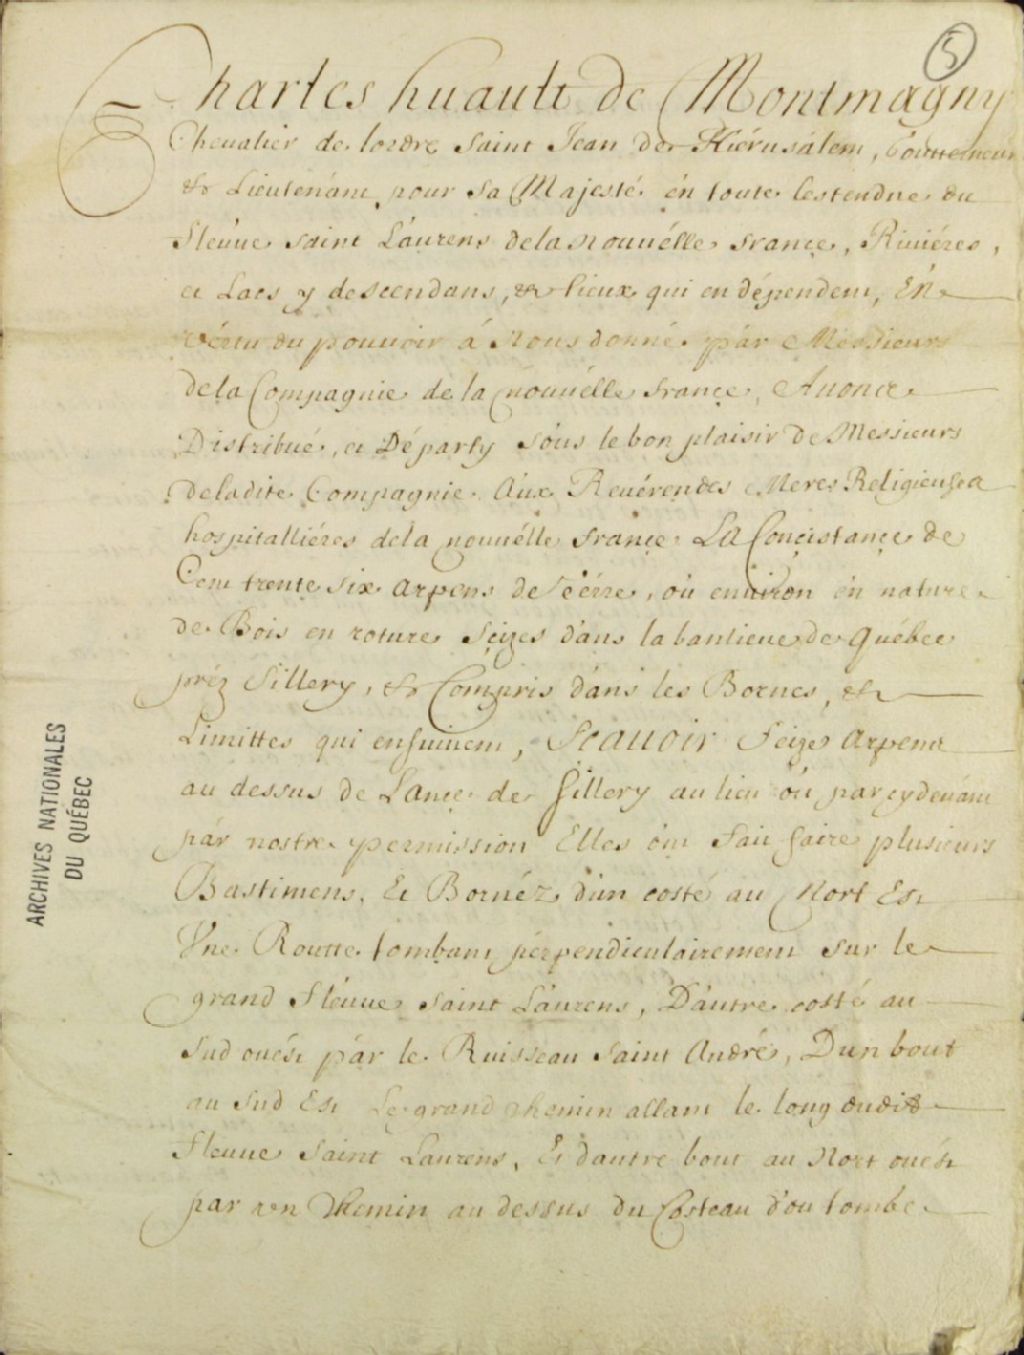 5
Charles huault de Montmagny
Cheualier de lordre Saint Jean de Hiérusalem, Gouuerneur
& Lieutenant pour Sa Majesté en toute lestendue du
fleuue saint Laurens dela nouuélle france, Riuiéres,
et Lacs y descendans, & lieux qui en dépendent, En
vértu du pouuoir á nous donné par Messieurs
dela Compagnie de la nouuélle france, Auons
Distribué, et Déparly sous le bon plaisir de Messieurs
deladite Compagnie Aux Reuérendes Meres Religieuses
hospitalliéres dela nouuélle france La Concistance de
Cent trente six arpens de térre, ou enuiron en nature
de Bois en roture sizes dans la banlieue de Québec
préz Sillery, & Compris dans les Bornes, &
Limittes qui ensuiuent, Scauoir Seize Arpens
au dessus de Lance de Sillery au lieu ou par cydeuant
par nostre permission Elles ont fait faire plusieurs
Bastimens, Et Bornéz d'un costé au Nort Est
Vne Routte tombant pérpendiculairement sur le
grand fleuue saint Laurens, D'autre costé au
Sud ouést pár le Ruisseau saint André, D'un bout
au Sud Est Le grand chemin allant le long dudit
fleuue saint Laurens, Et dautre bout au Nort ouést
par un chemin au dessus du Costeau d'ou tombe
ARCHIVES NATIONALES
DU QUÉBEC